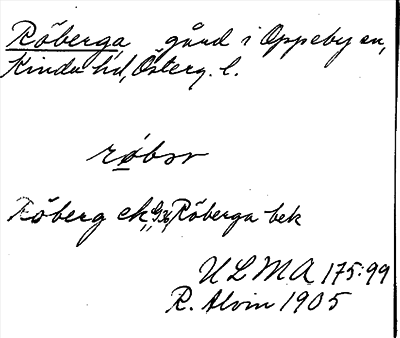 Röberga gård i Oppeby sn,
Kinda hd, Österg. l.
røbər
Röberg ek Röberga bek
ULMA 175:99
R. Alvin 1905